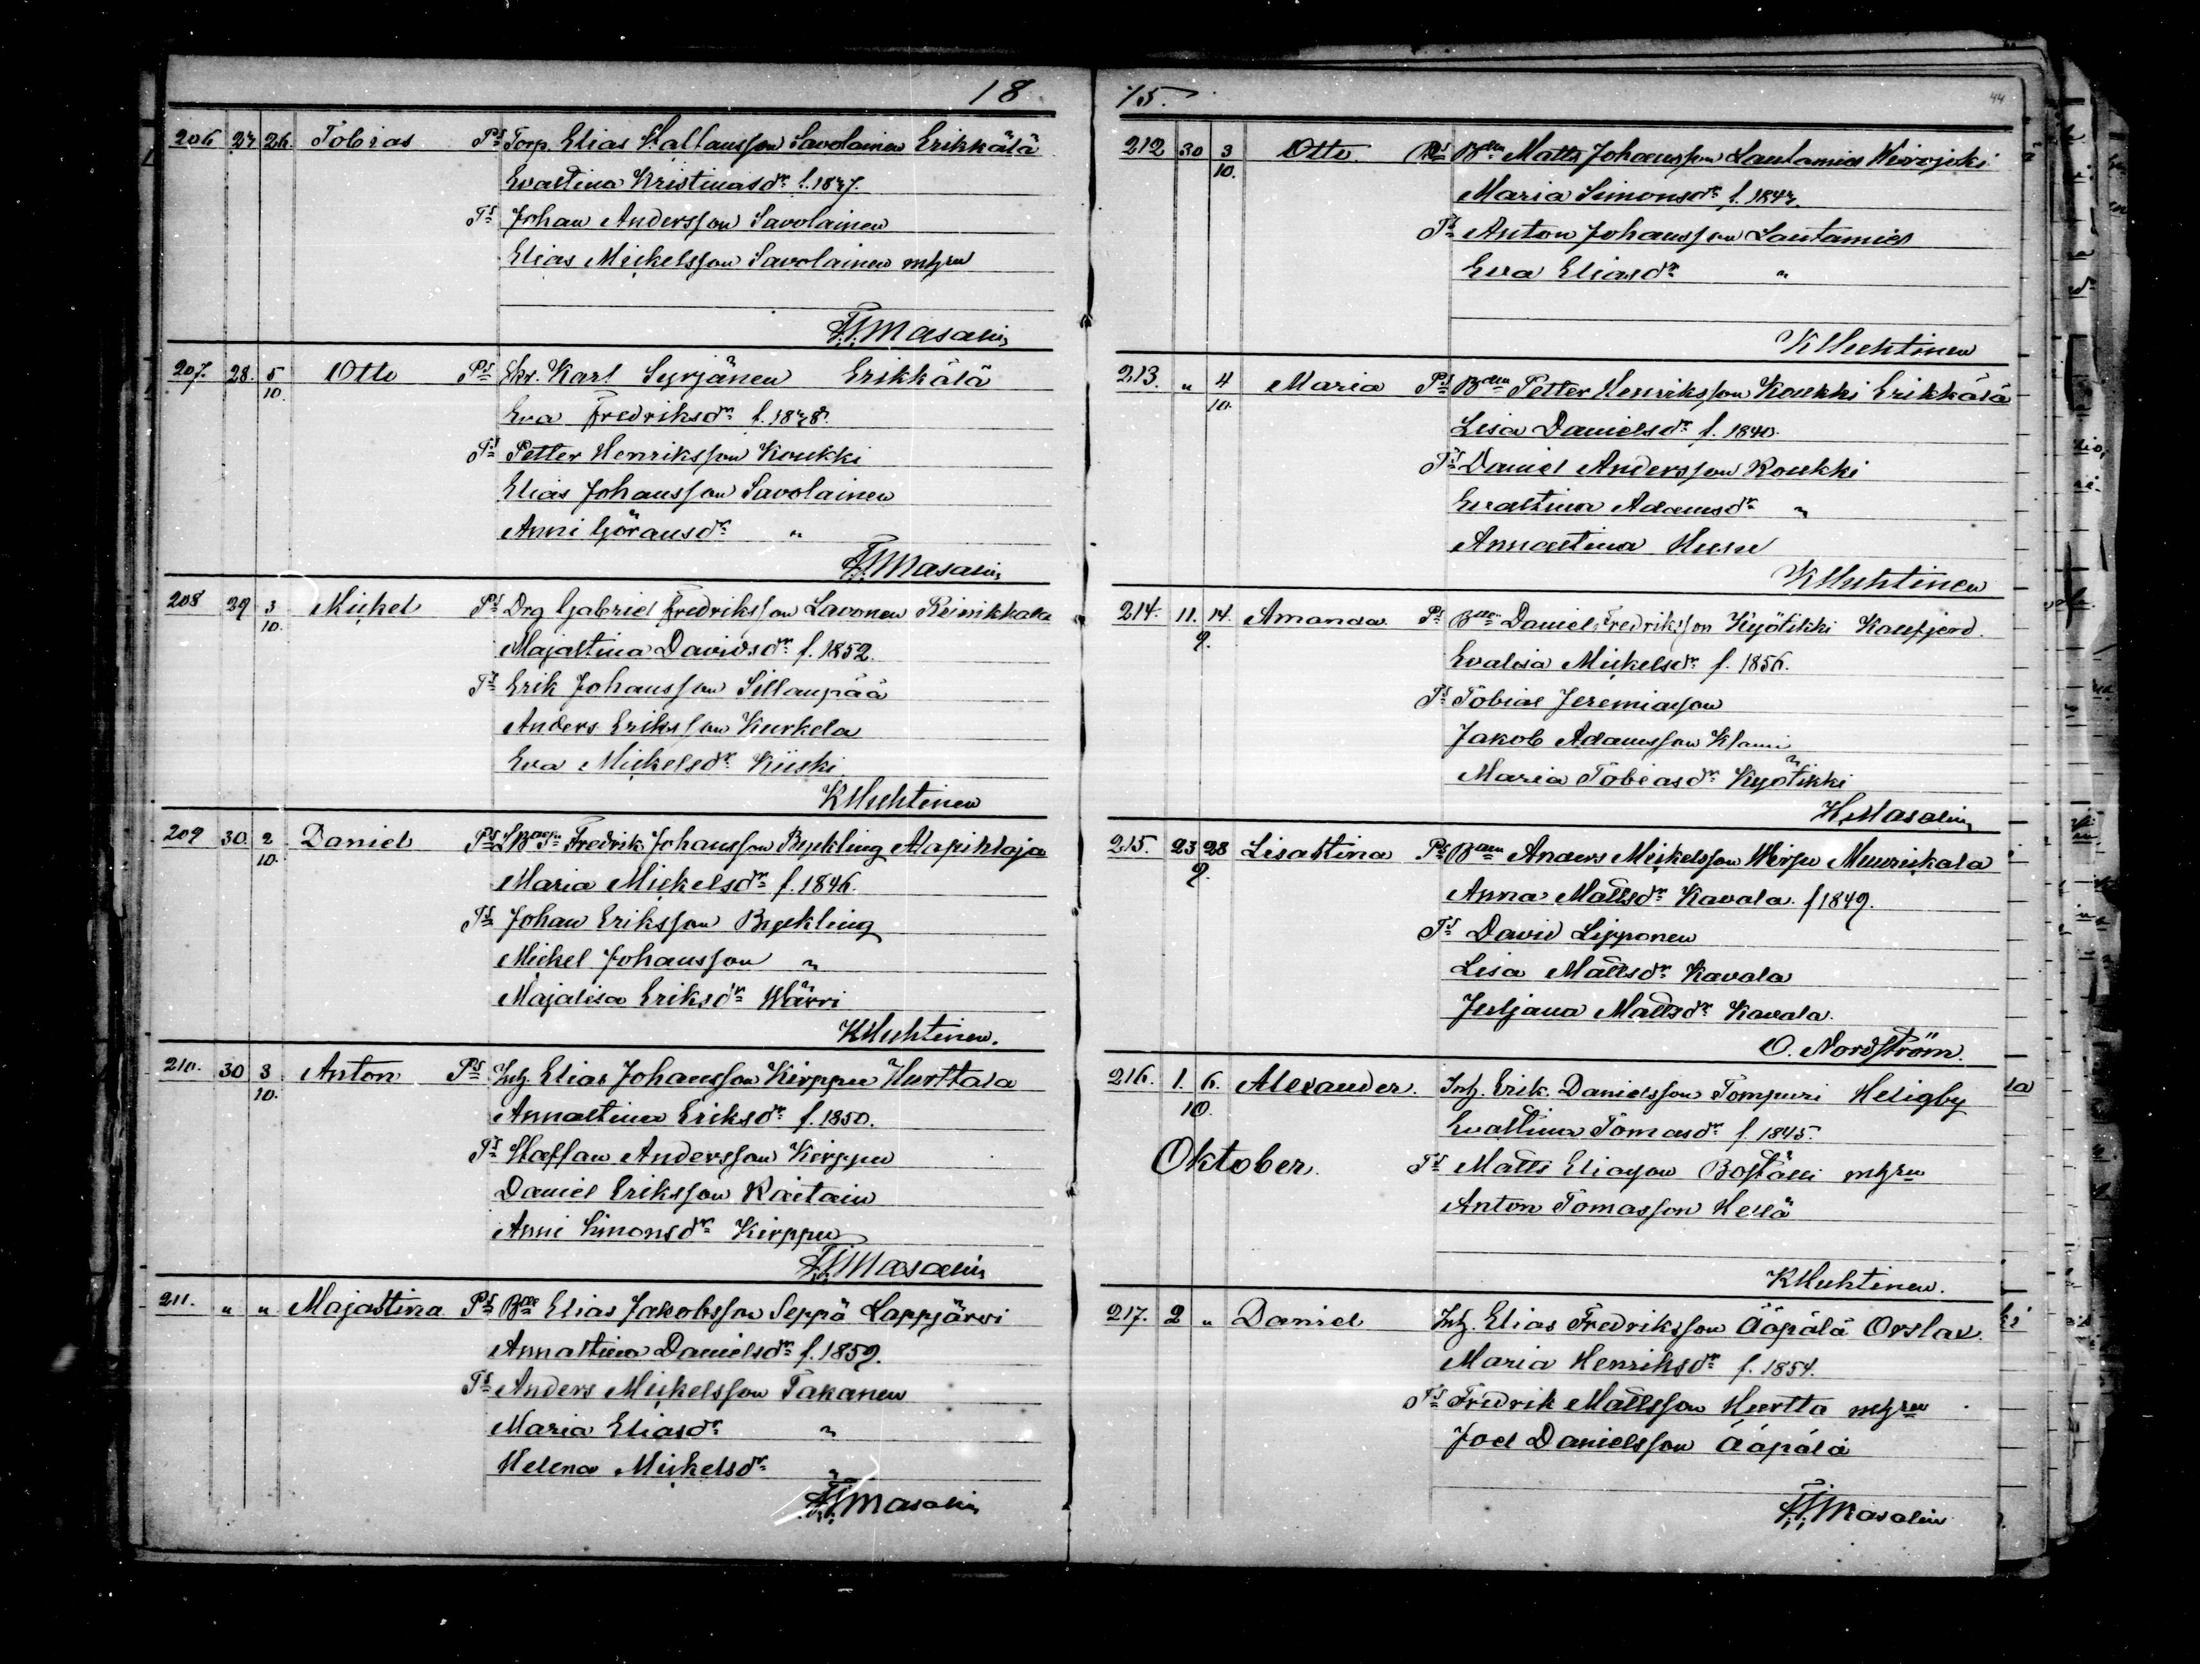 18
206 27 26 Tobias Ps Torp. Elias Staffansson Savolainen Erikkälä
Evastina Kristinasdr f. 1847.
Ts Johan Andersson Savolainen
Elias Mickelsson Savolainen
Masalin
207. 28. 5/10. Otto Ps Skr. Karl Syrjänen Erikkälä
Eva Fredriksdr f. 1848.
Ts Petter Henriksson Koukki
Elias Johansson Savolainen
Anni Göransdr "
Masalin
208 29 3/10. Mickel Ps Drg Gabriel Fredriksson Lavonen Reinikkala
Majastina Davidsdr f. 1852.
Ts Erik Johansson Sillanpää
Anders Eriksson Kurkela
Eva Mickelsdr Kiiski
K Huhtinen
209 30. 2/10. Daniel Ps Fredrik Johansson Byckling Alapihlaja
Maria Mickelsdr f. 1846.
Ts Johan Eriksson Byckling
Mickel Johansson "
Majalisa Eriksdr Wärri
K Huhtinen.
210. 30 3/10. Anton Ps Inh. Elias Johansson Kirppu Hurttala
Annastina Eriksdr f. 1850.
Ts Staffan Andersson Kirppu
Daniel Eriksson Raitain
Anni Simonsdr Kirppu
Masalin
211. " " Majastina Ps Elias Jakobsson Seppä Lappjärvi
Annastina Danielsdr f. 1852.
Ts Anders Mickelsson Takanen
Maria Eliasdr "
Helena Mickelsdr "
Masalin
75.
44
212 30 3/10. Otto. Ps Bdn Matts Johansson Lautamies Wirojoki
Maria Simonsdr f. 1847.
Ts Anton Johansson Lautamies
Eva Eliasdr "
K Huhtinen
213. " 4/10. Maria Ps Bdn Petter Henriksson Koukki Erikkälä
Lisa Danielsdr f. 1840.
Ts Daniel Andersson Koukki
Evastina Adamsdr "
Annastina Husu
K Huhtinen
214. 11. 14. 9. Amanda. Ps Daniel Fredriksson Kyötikki Kansjerd.
Evalisa Mickelsdr f. 1856.
Ts Tobias Jeremiasson
Jakob Adamsson Klami
Maria Tobiasdr Kyötikki
H. Masalin
215. 23 28 9. Lisastina Ps Anders Mickelsson Wirsu Muurikala
Anna Mattsdr Kavala. f 1849.
Ts David Lipponen
Lisa Mattsdr Kavala
Juljana Mattsdr Kavala.
O. Nordström.
216. 1. 6. 10. Alexander. Inh. Erik. Danielsson Tompuri Heligby
Evastina Tomasdr f. 1845.
Oktober. Ts Matts Eliasson Boställi
Anton Tomasson Hellä
K Huhtinen.
217. 2 " Daniel Inh. Elias Fredriksson Ääpälä Orslax.
Maria Henriksdr f. 1854.
Ts Fredrik Mattsson Hurtta
Joel Danielsson Ääpälä
Masalin